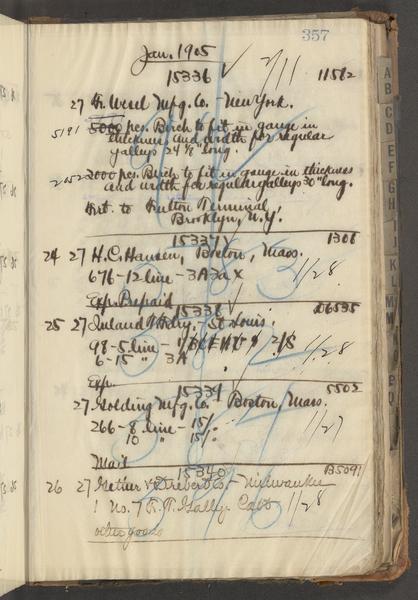 357
Jan. 1905
15336 2/11 11582
27 Mfg. Co. - New York.
5191 5000 pcs. Birch to fit in gauge in
thickness and width for regular
galleys 24 ½" long.
2052 2000 pcs. Birch to fit in gauge in thickness
and width for regular galleys 30" long.
Frt. to Fulton Terminal,
Brooklyn, N.Y.
15337 1306
24 27 H. C. Hansen, Boston, Mass.
676 - 12 line - 3A 2a X 1/28
Exp. Prepaid
15338 06535
25 27 Inland St. Louis.
98 - 5 line - 2/S
6 - 15 " 3A 1/28
Exp.
15339 5502
27 Golding Mfg. Co. - Boston, Mass.
266 - 8 line - 15/ 1/27
10 " 15/
Mail
15340 135091
26 27 Co. - Milwaukee
1 No. 7 R. P. Galley Cab. 1/28
other goods
A
B
C
D
E
F
G
H
I
J
K
L
M